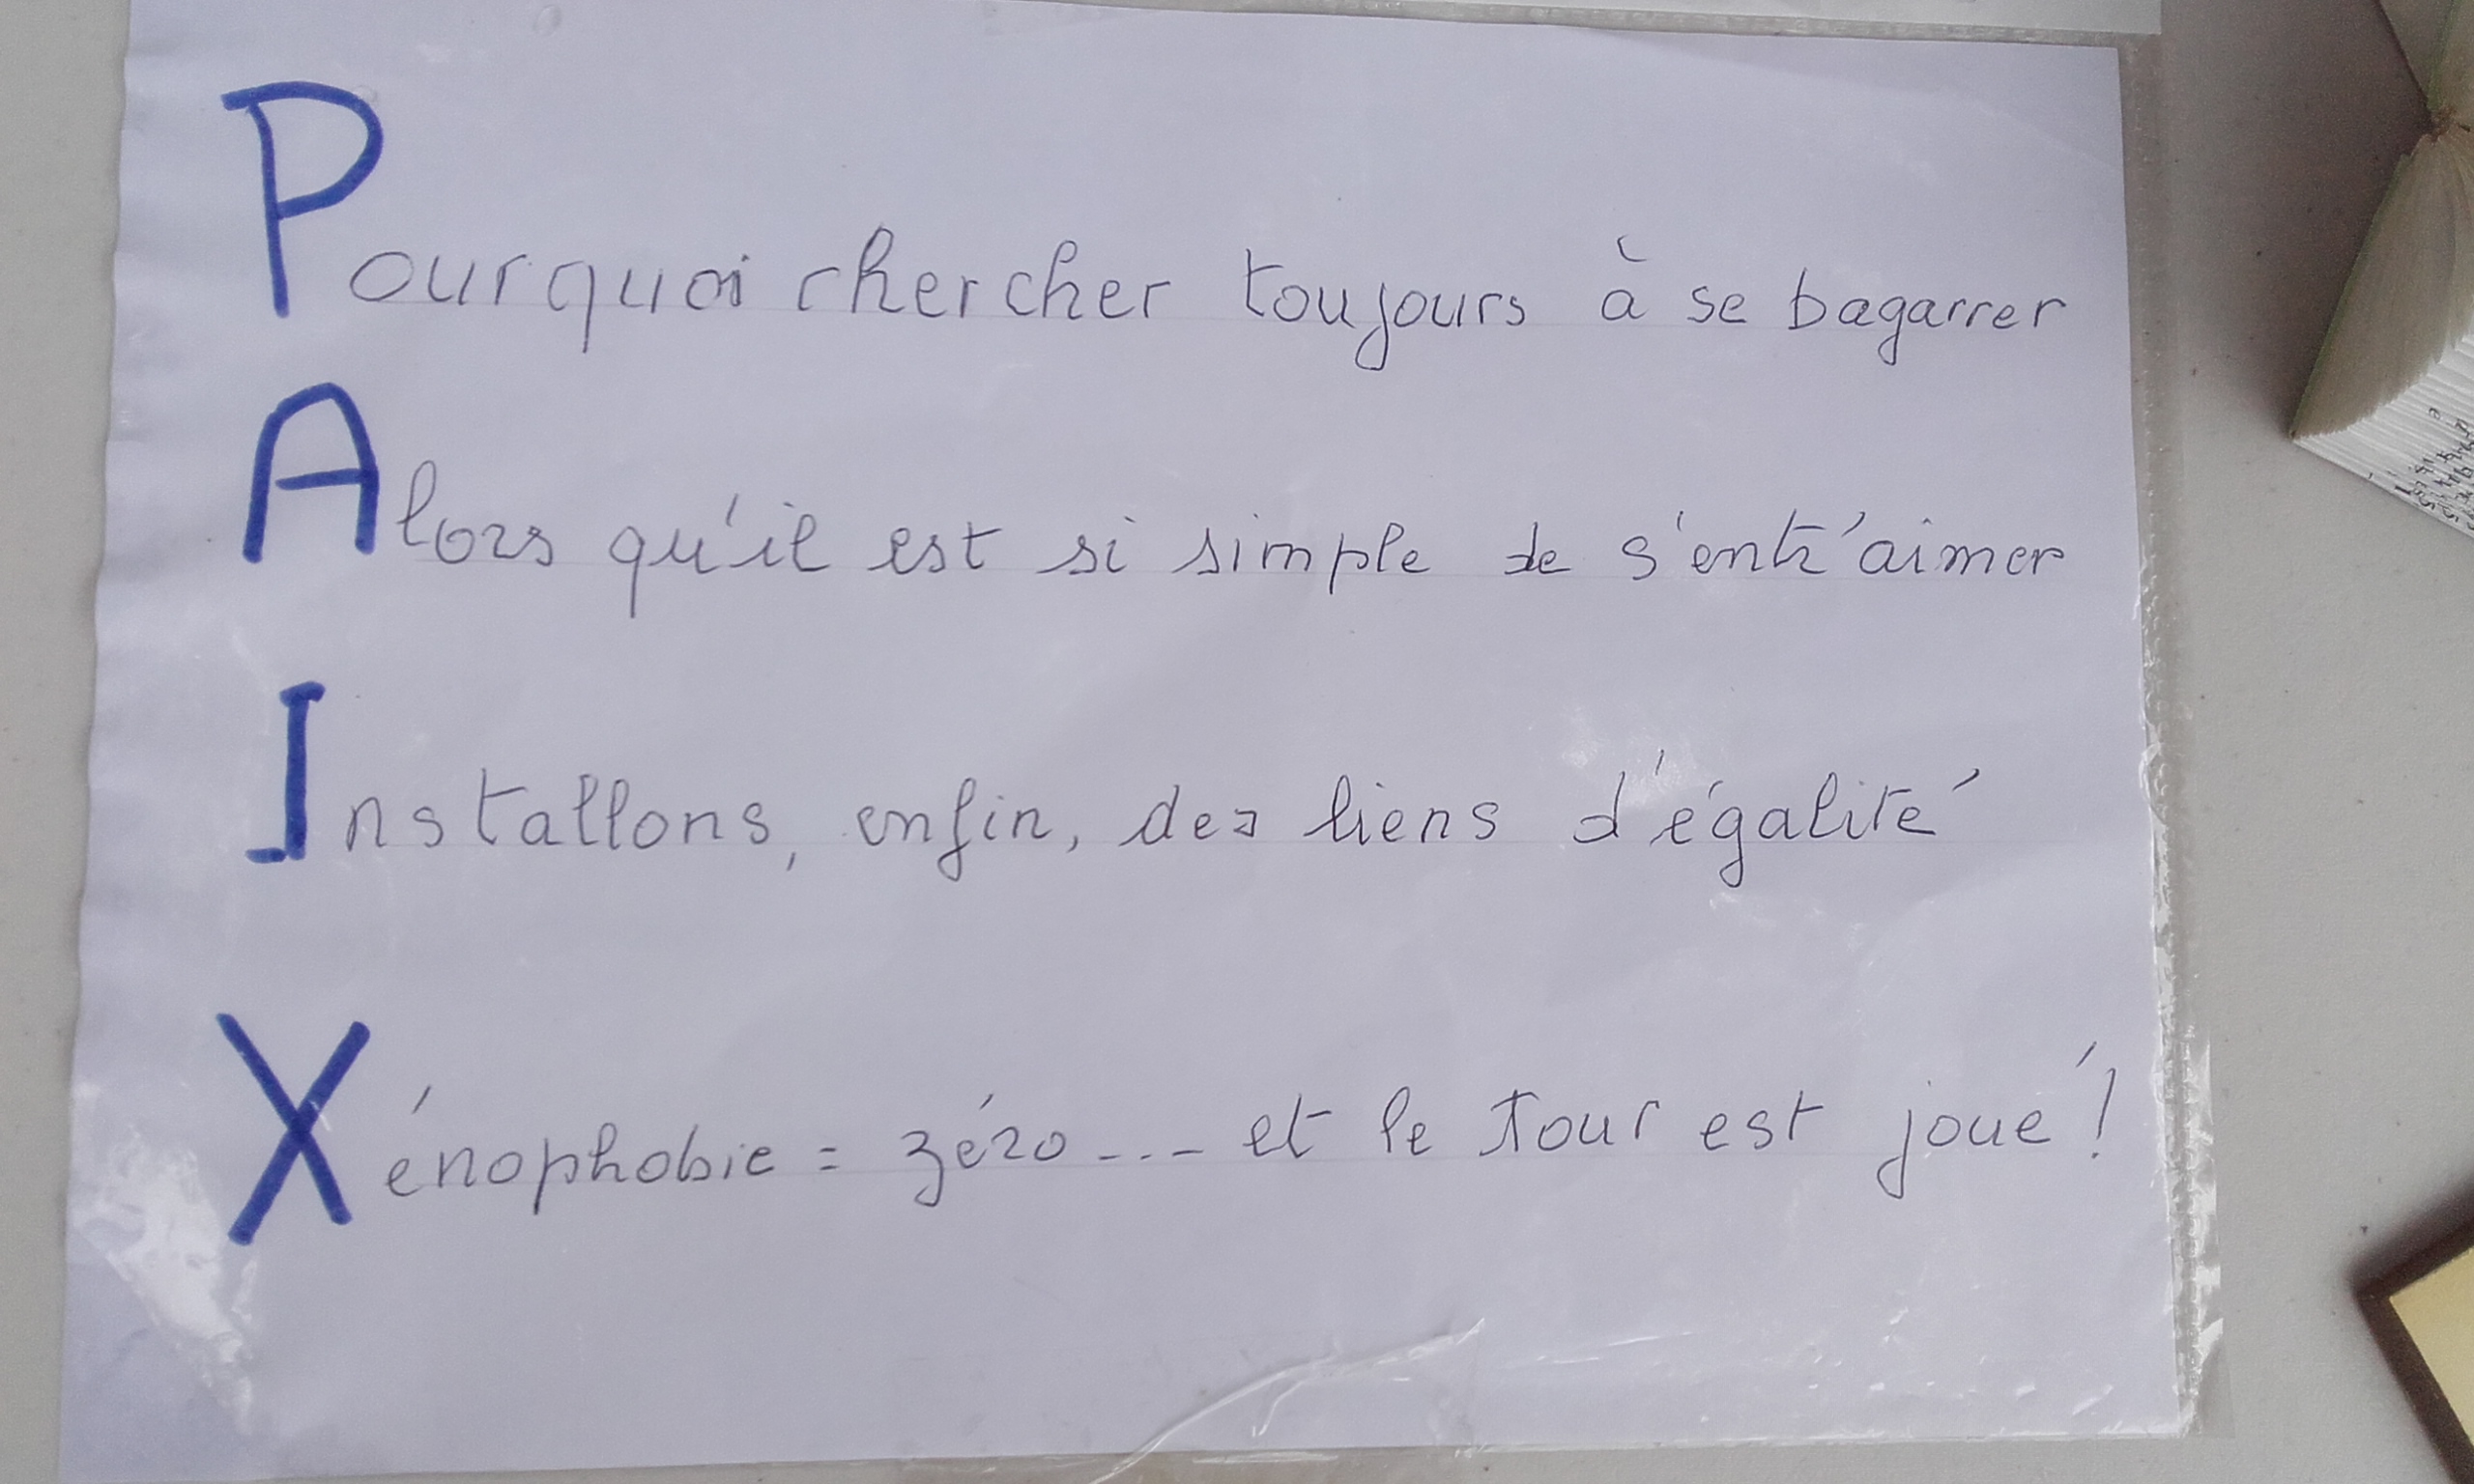 Pourquoi chercher toujours à se bagarrer
Alors qu'il est si simple de s'entr'aimer
Installons, enfin, des liens d'égalité
Xénophobie = zéro... et le tour est joué!